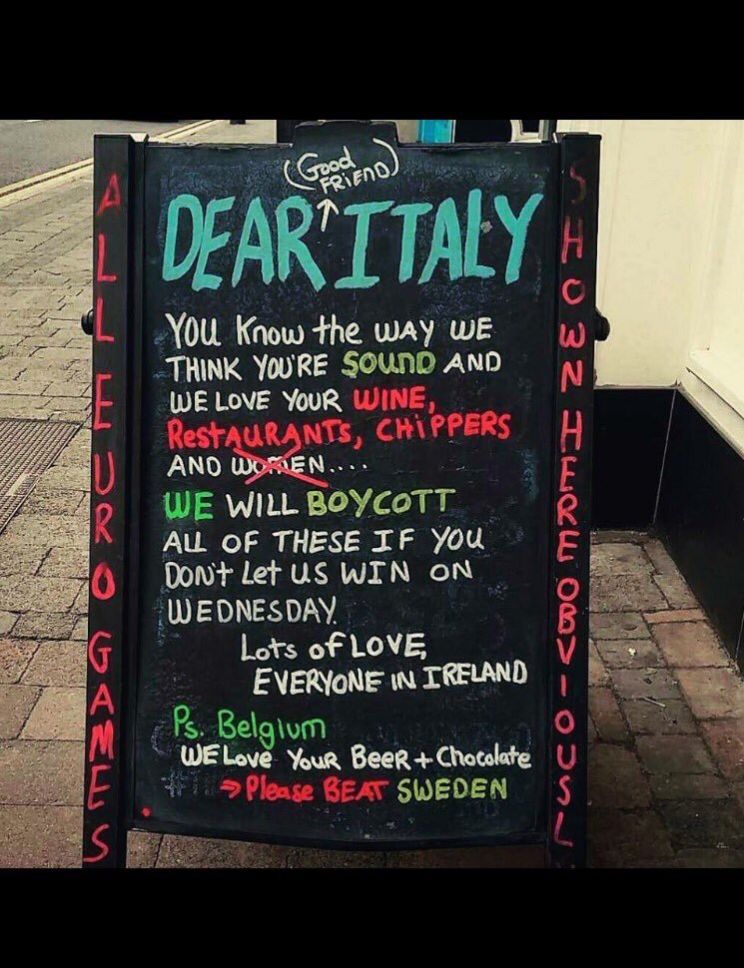 (Good
FRIEND)
DEAR ↑ ITALY
YOU Know the WAY WE
THINK YOU'RE SOUND AND
WE LOVE YOUR WINE,
RESTAURANTS, CHIPPERS
AND WOMEN....
WE WILL BOYCOTT
ALL OF THESE IF YOU
DON't Let US WIN ON
WEDNESDAY.
Lots of LOVE,
EVERYONE IN IRELAND
Ps. Belgium
WE Love YouR BeeR + Chocolate
→ Please BEAT SWEDEN
ALL EURO GAMES
SHOWN HERE OBVIOUSL